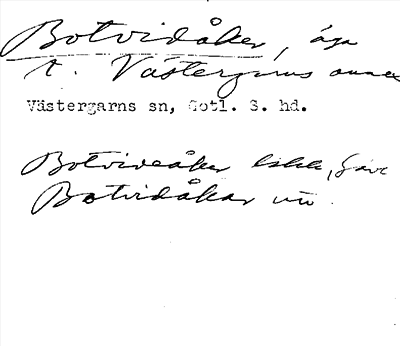 Botvidåker, äga
t. Västergarns annex
Västergarns sn, Gotl. S. hd.
Botvideåker
Botvidåkar